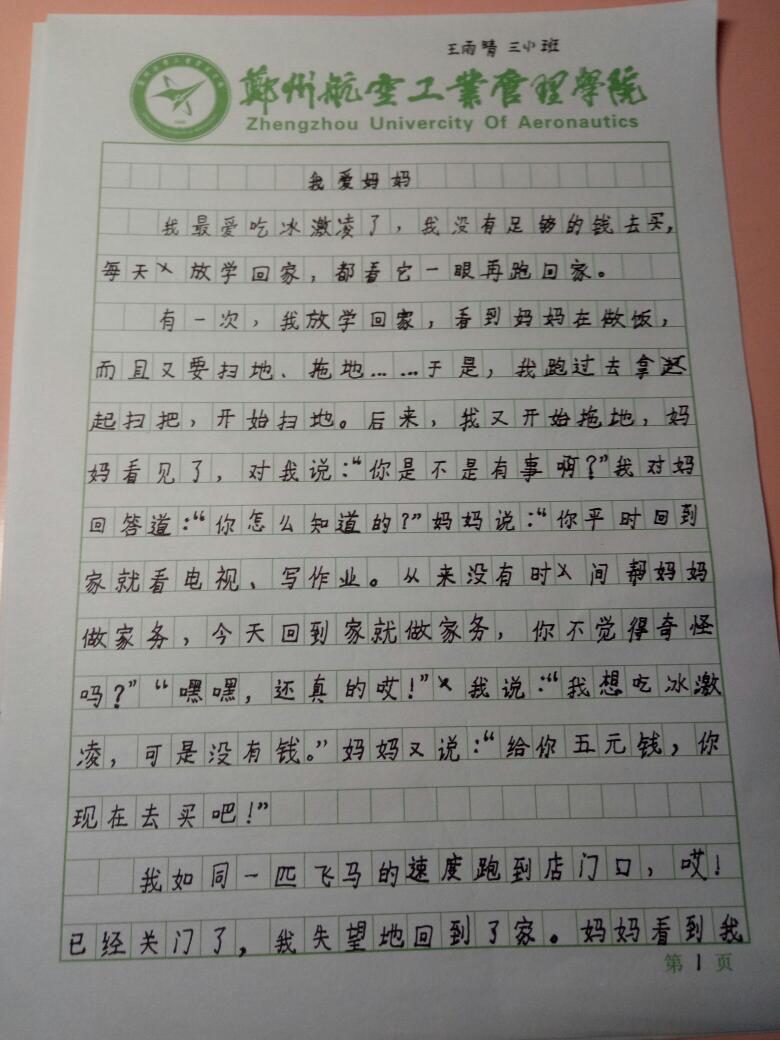 王雨晴 三小班
鄭州航空工業管理學院
Zhengzhou Univercity Of Aeronautics
我爱妈妈
我最爱吃冰激凌了，我没有足够的钱去买，
每天放学回家，都看它一眼再跑回家。
有一次，我放学回家，看到妈妈在做饭，
而且又要扫地、拖地……于是，我跑过去拿
起扫把，开始扫地。后来，我又开始拖地，妈
妈看见了，对我说：“你是不是有事啊？”我对妈
回答道：“你怎么知道的？”妈妈说：“你平时回到
家就看电视、写作业。从来没有时间帮妈妈
做家务，今天回到家就做家务，你不觉得奇怪
吗？”“嘿嘿，还真的哎！”我说：“我想吃冰激
凌，可是没有钱。”妈妈又说：“给你五元钱，你
现在去买吧！”
我如同一匹飞马的速度跑到店门口，哎！
已经关门了，我失望地回到了家。妈妈看到我
第1页